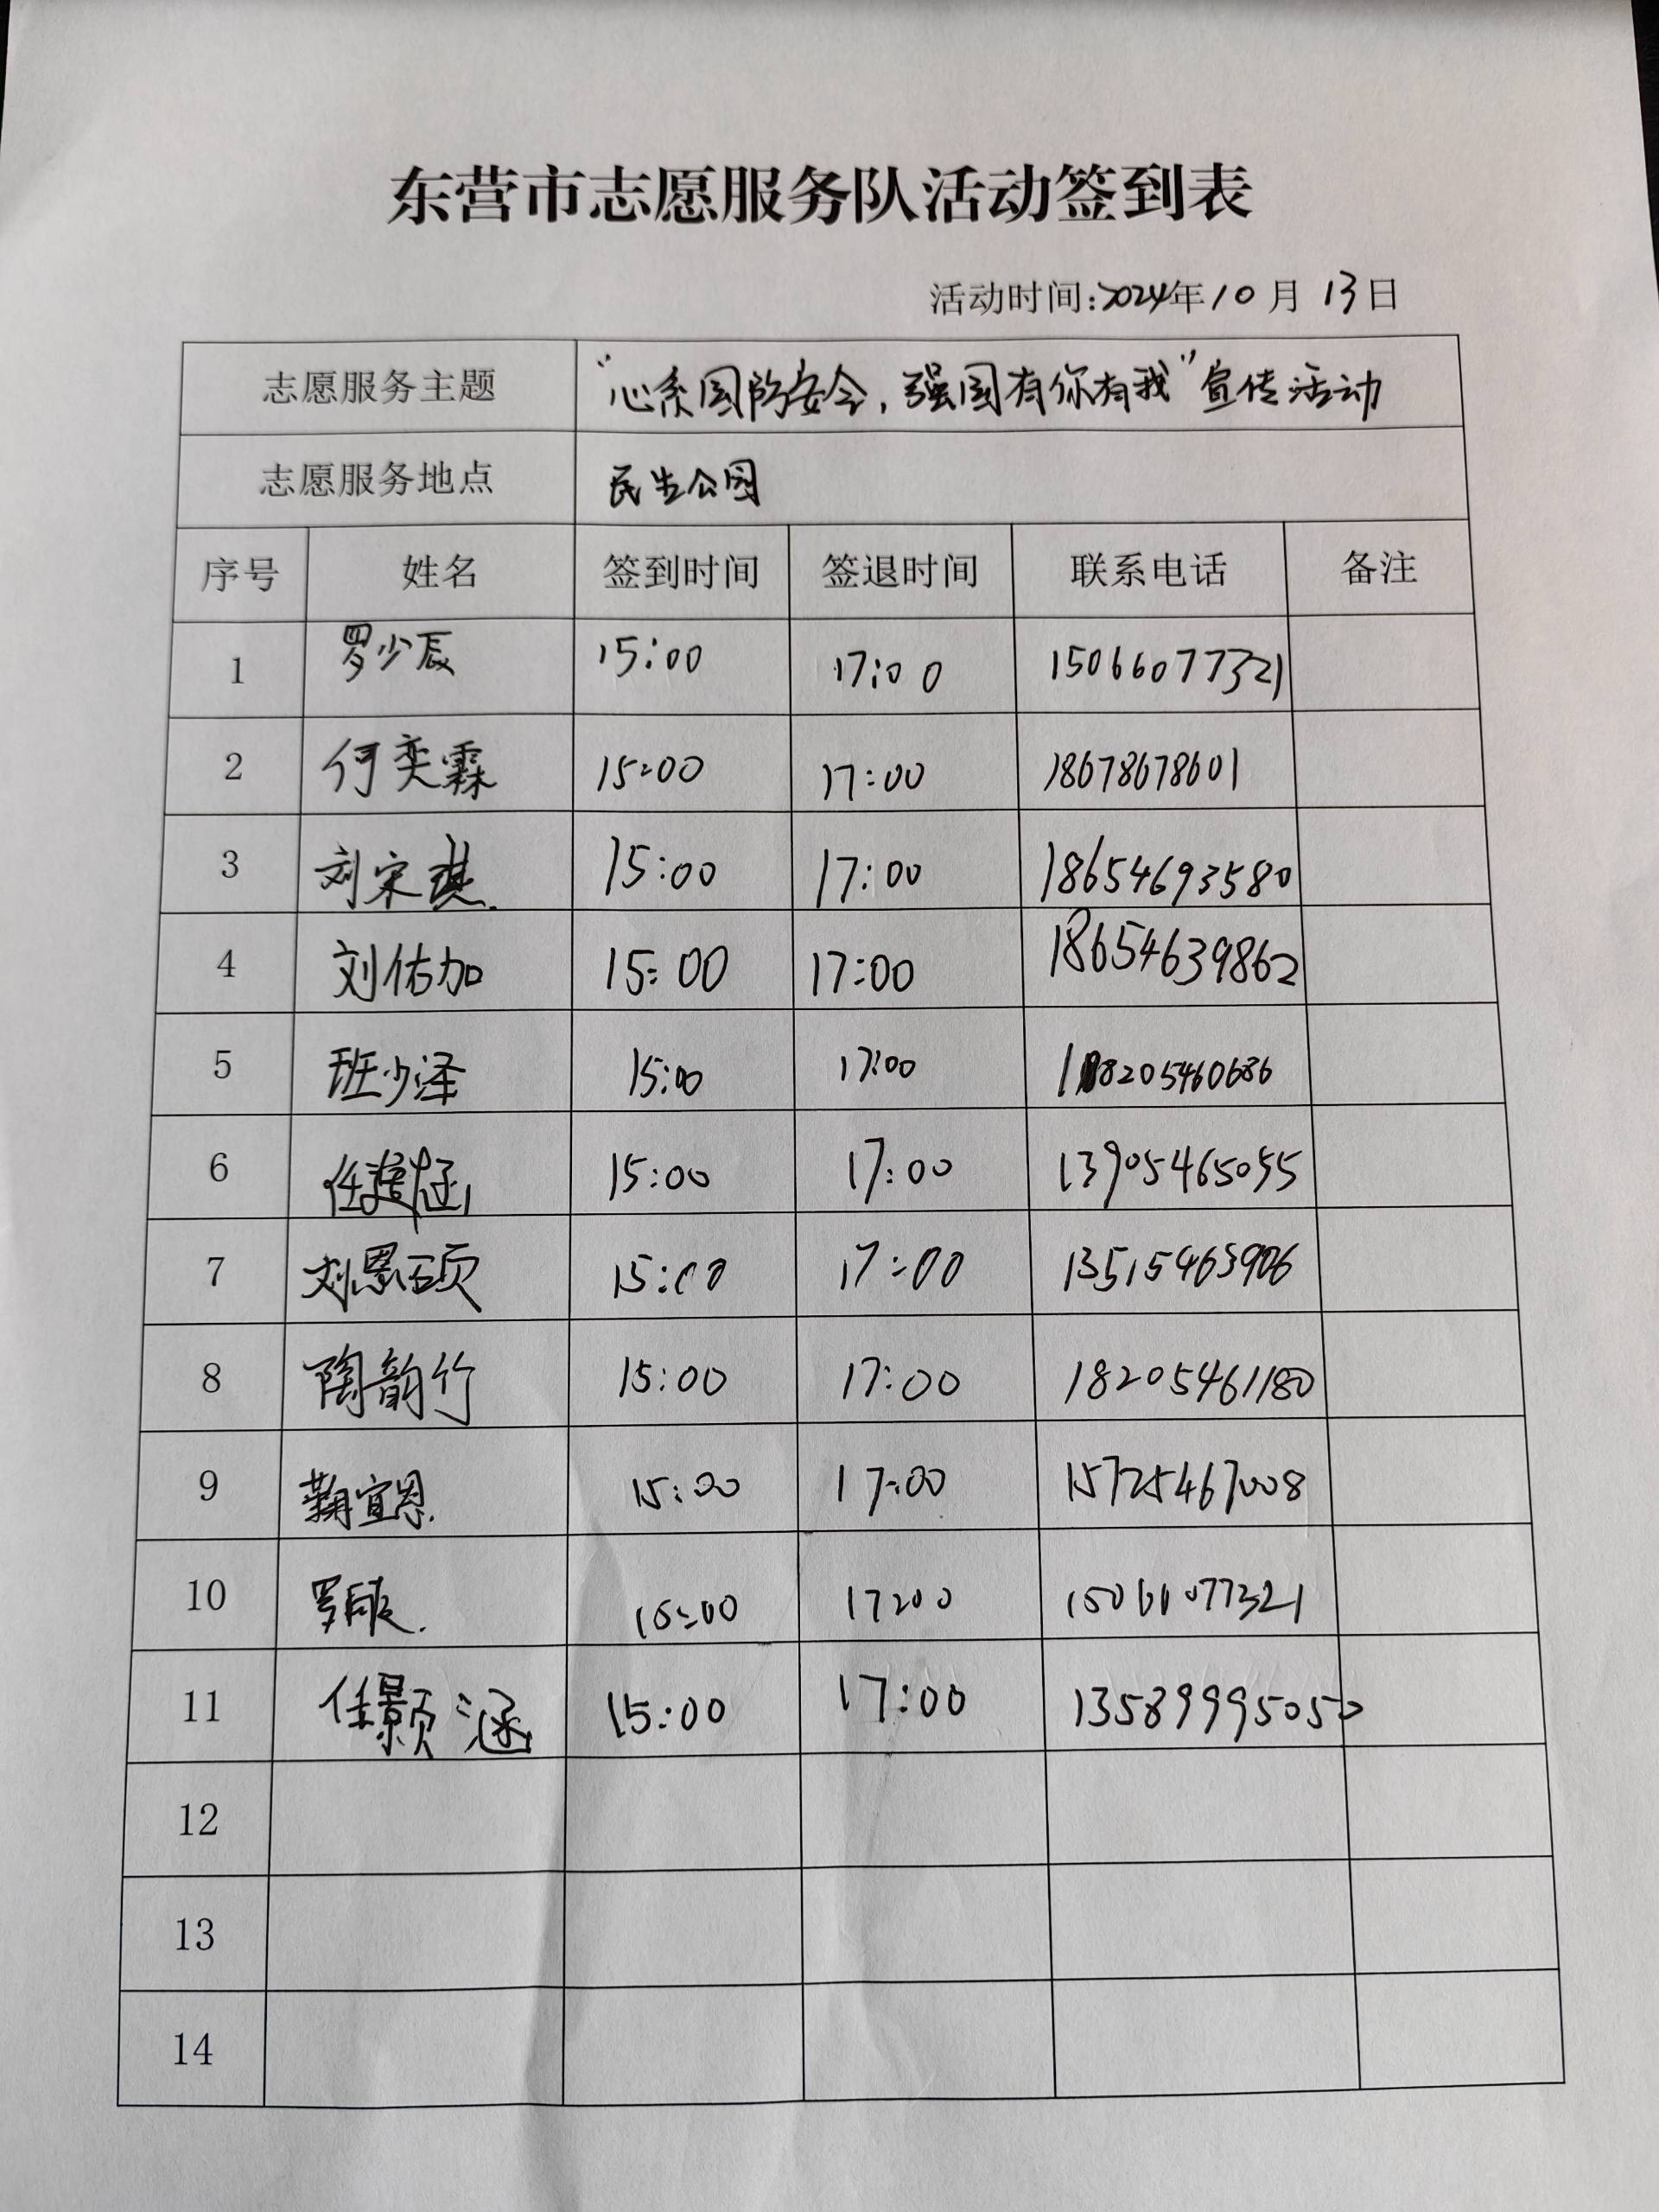 东营市志愿服务队活动签到表
活动时间:2024年10月13日
志愿服务主题 “心系国防安全,强国有你有我”宣传活动
志愿服务地点 民生公园
序号 姓名 签到时间 签退时间 联系电话 备注
1 罗少辰 15:00 17:00 15066077321
2 何奕霖 15:00 17:00 18678678601
3 刘宋琪 15:00 17:00 18654693580
4 刘佑加 15:00 17:00 18654639862
5 班少泽 15:00 17:00 18205460686
6 15:00 17:00 13905465055
7 刘恩硕 15:00 17:00 13515463906
8 陶韵竹 15:00 17:00 18205461180
9 鞠宣恩 15:00 17:00 15725467008
10 15:00 17:00
11 任颢涵 15:00 17:00 13589995050
12
13
14